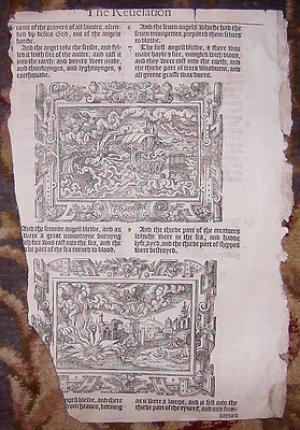 The Reuelation
ſame of the prayers of all Saintes, aſcen-
ded vp before God, out of the angels
hande.
And the angel toke the ſenſer, and fyl-
led it with fire of the aulter, and caſt it
into the earth: and voyces were made,
and thundrynges, and lyghtenynges, &
earthquake.
6 And the ſeuen angels whiche had the
ſeuen trumpettes, prepared them ſelues
to blowe.
7 The firſt angell blewe, & there was
made hayle & fire, mingled with blood,
and they were caſt into the earth, and
the thirde part of trees was burnt, and
all greene graſſe was burnt.
And the ſeconde angell blewe, and as
were a great mountayne burnyng
was caſt into the ſea, and the
part of the ſea turned to blood.
9 And the thirde part of the creatures
whiche were in the ſea, and hadde
lyfe, dyed, and the thirde part of ſhippes
were deſtroyed.
angell blewe, and there
from heauen, burning
as it were a lampe, and it fell into the
thirde part of the ryuers, and into foun-
taynes